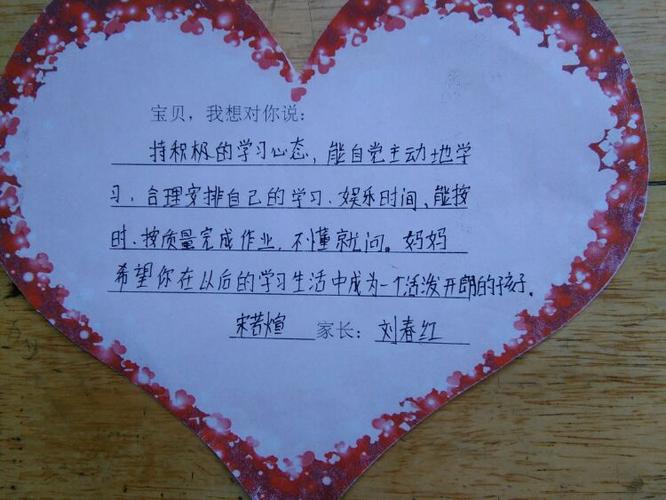 宝贝，我想对你说：
持积极的学习心态，能自觉主动地学
习，合理安排自己的学习、娱乐时间、能按
时、按质量完成作业，不懂就问。妈妈
希望你在以后的学习生活中成为一个活泼开朗的孩子。
宋若煊 家长：刘春红